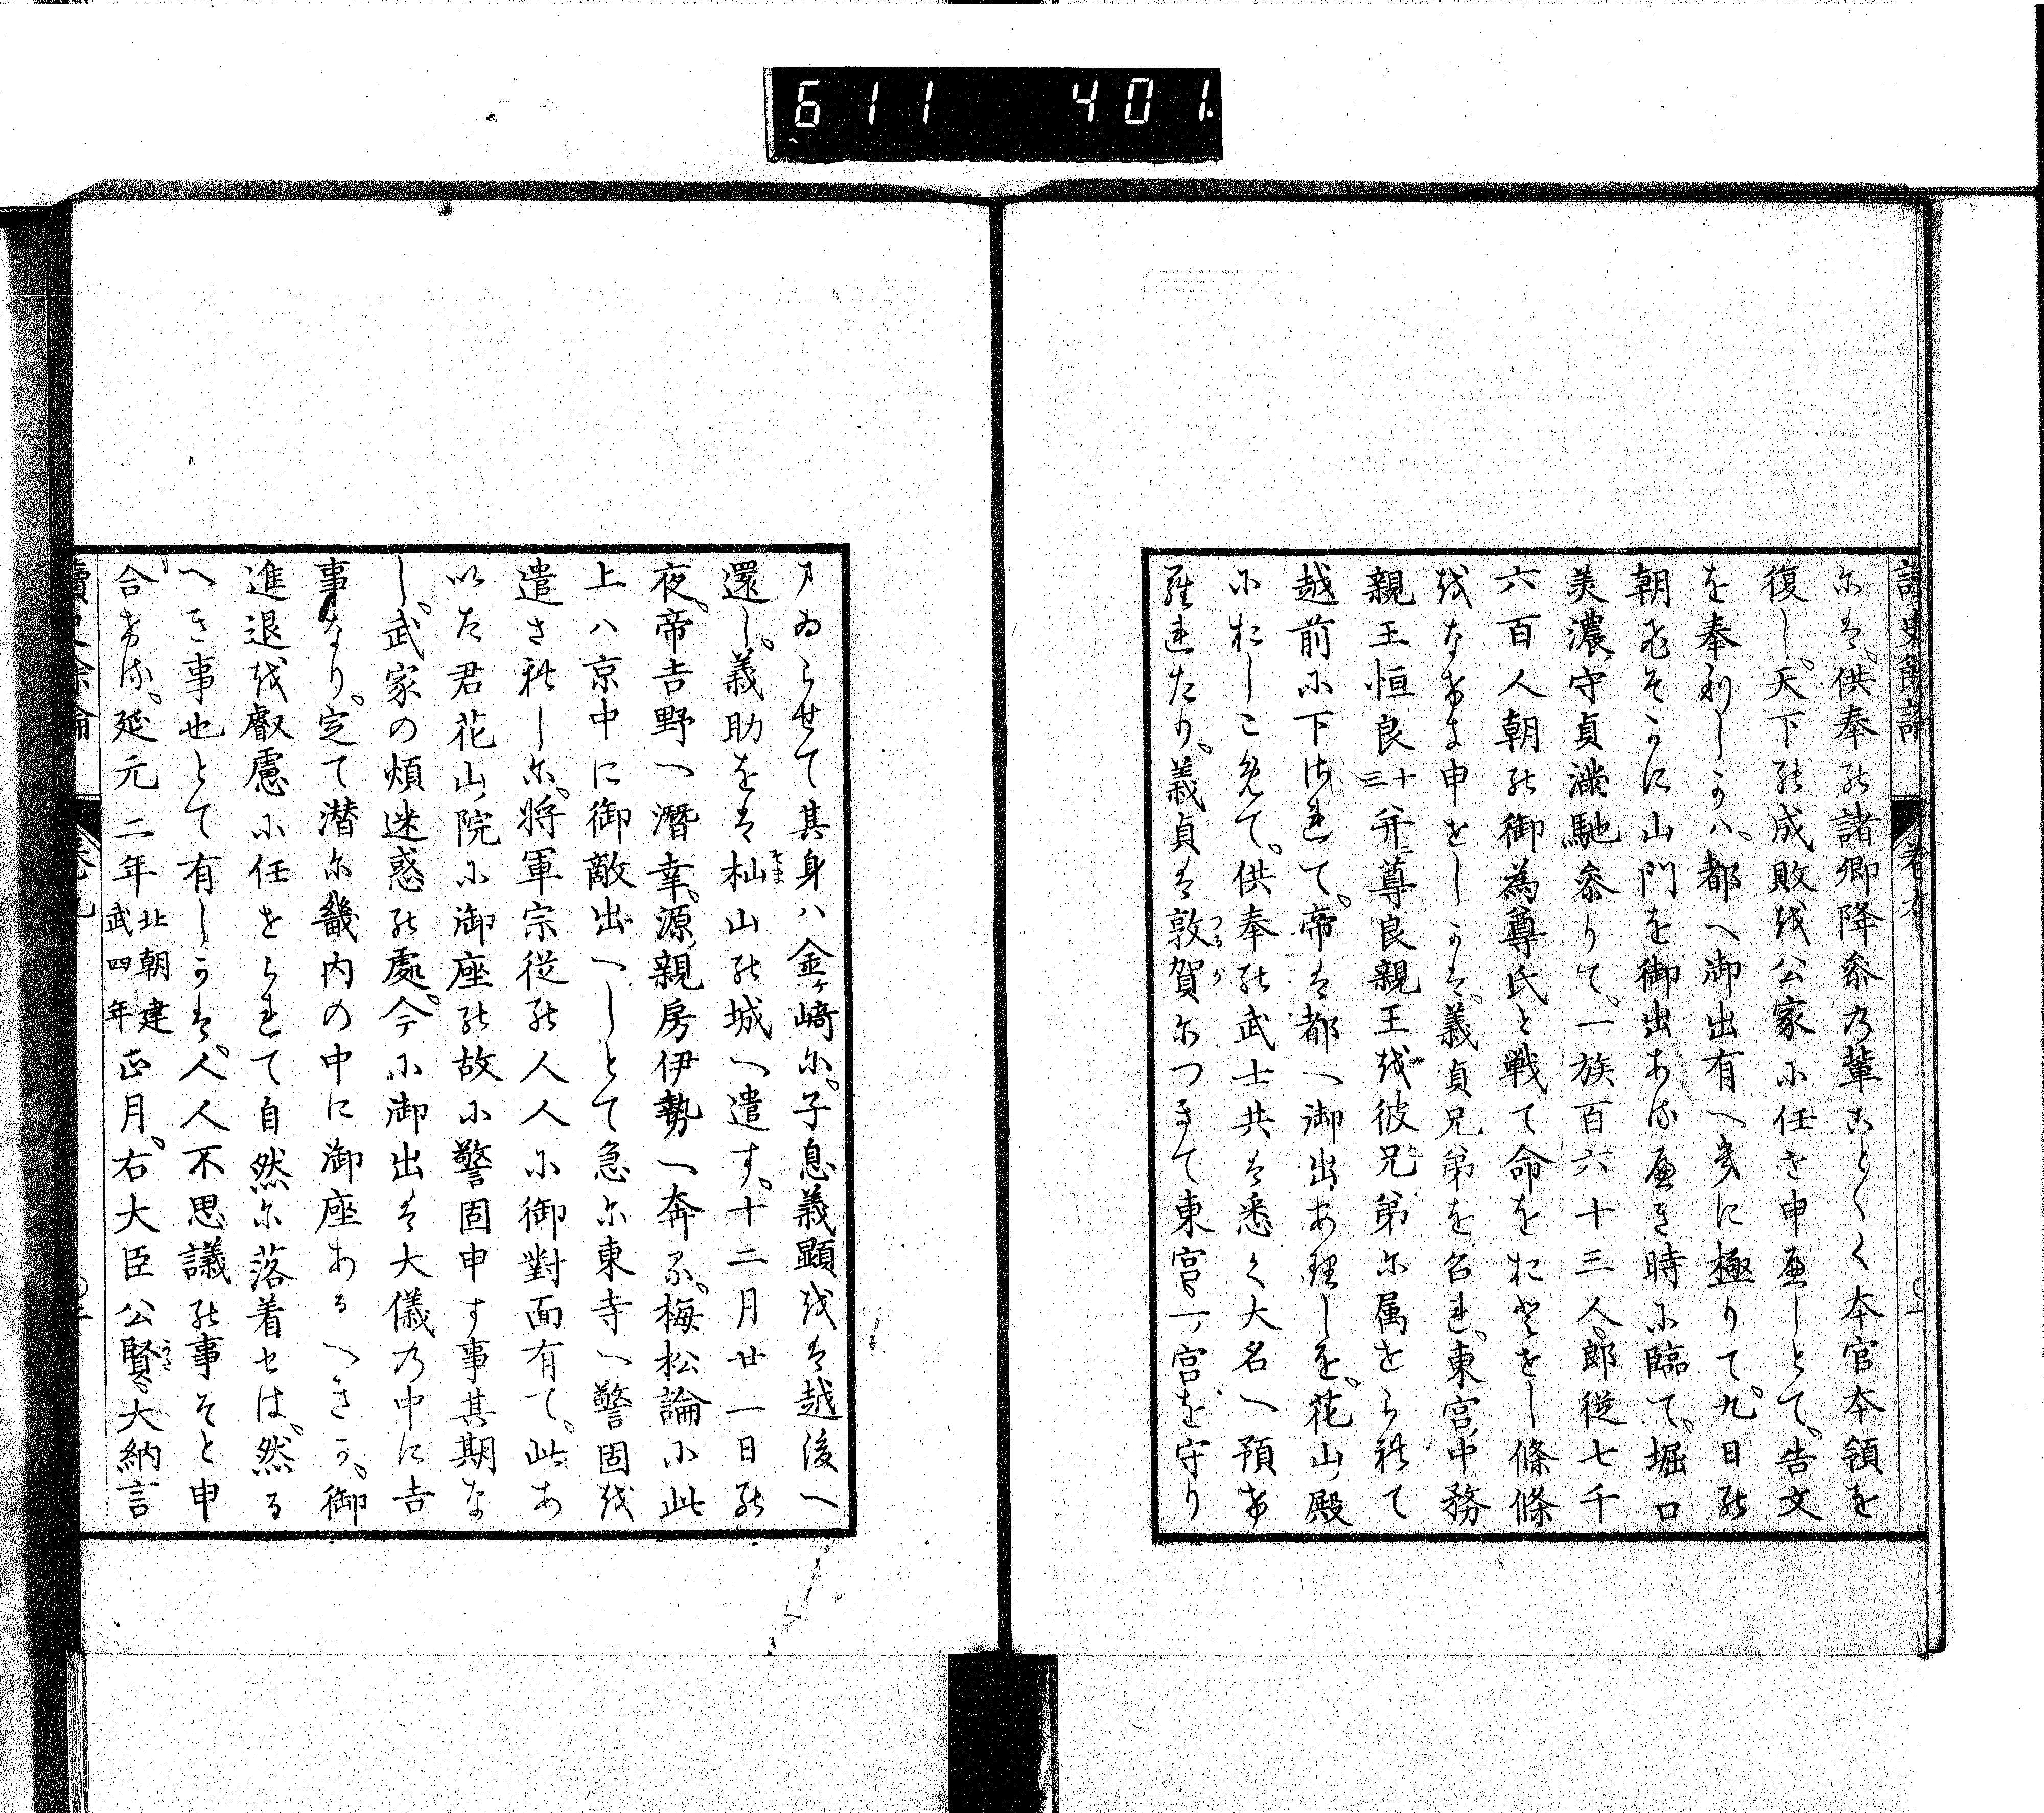 611 401
讀史餘論 巻九
尓は。供奉能諸卿降参乃輩ことく〳〵く本官本領を
復し。天下能成敗越公家尓任せ申へしとて。告文
を奉利しかハ。都へ御出有へきに極りて。九日能
朝既そてに山門を御出ある遍き時尓臨て。堀口
美濃守貞満馳参りて。一族百六十三人。郎従七千
六百人朝能御為尊氏と戦て命をおとせし條條
越なけき申せしかは。義貞兄弟を召連。東宮中務
親王恒良十三并尊良親王越彼兄弟尓属せら礼て
越前尓下さ連て。帝は都へ御出あ里しを。花山殿
尓おしこめて。供奉能武士共は悉く大名へ預け
羅連たり。義貞は敦賀尓つきて東宮一宮を守り
まゐらせて其身ハ金ヶ﨑尓。子息義顕越は越後へ
還し。義助をは杣山能城へ遣す。十二月廿一日能
夜。帝吉野へ潛幸。源親房伊勢へ奔る。梅松論尓此
上ハ京中に御敵出へしとて急尓東寺へ警固越
遣さ礼し尓。将軍宗従能人人尓御對面有て。此あ
以た君花山院尓御座能故尓警固申す事其期な
し。武家の煩迷惑能處。今尓御出は大儀乃中に吉
事なり。定て潜尓畿内の中に御座あるへきか。御
進退越叡慮尓任せら連て自然尓落着せは。然る
へき事也とて有しかは。人人不思議能事そと申
合ける。延元二年北朝建武四年正月。右大臣公賢大納言
讀史餘論 巻九